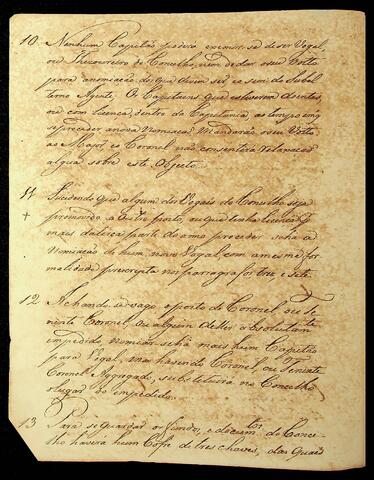 10 Nenhum Capitão poderá eximir-se de ser Vogal,
ou Thesoureiro do Conselho, nem de dar o seu Voto
para anomiação dos que devem ser e o sem do Subal
terno Agente. Os Capitaens que estiverem doentes,
ou com Licença, dentro da Capitania, ao tempo em q̃
se proceder a nova Nomeaçaõ Mandarão o seu Voto
ao Major, e o Coronel não consentirá relaxação
algua sobre este Objecto.
11 Sucedendo que algum dos Vogais do Conselho seja
+ promovido a outro posto, ou que tenha Licença p.
mais da terça parte do anno proceder se há a
Nomiação de hum novo Vogal, com a mesma for
malidade prescripta nos parragrafos tres, e sete.
12 Achando-se vago o posto de Coronel, ou Te-
nente Coronel, ou algum delles absolutam.te
impedido, nomiar se há mais hum Capitão
para Vogal, mas havendo Coronel, ou Tenente
Coronel Aggregado, substituirá no Conselho
o lugar do impedido.
13 Para se guardar os fundos, e docum.tos do Conce-
lho haverá hum Cofre de tres chaves, das quais